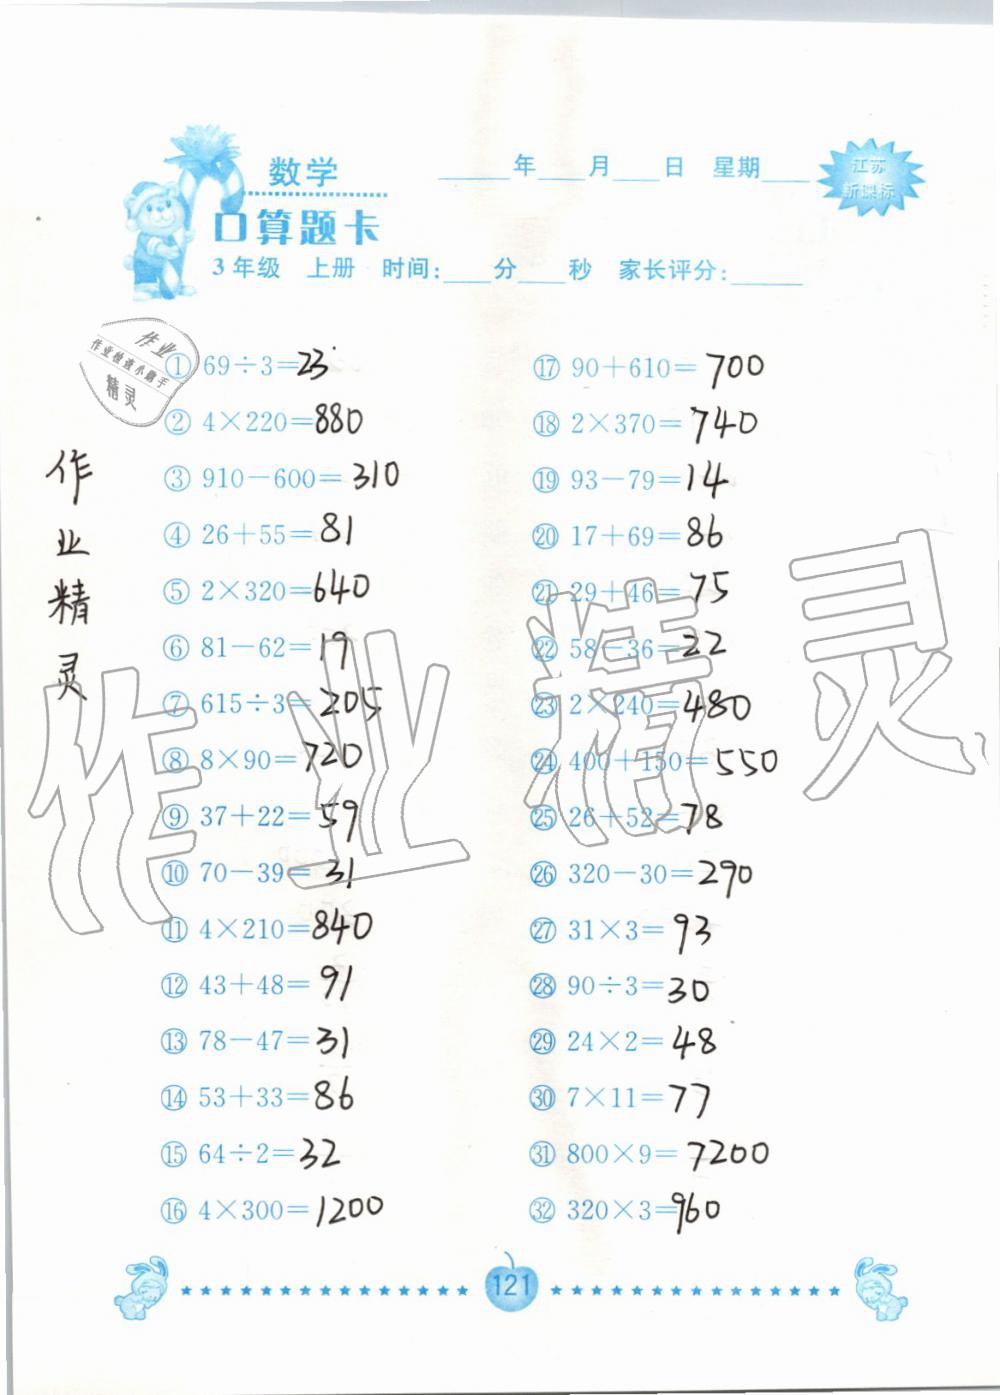 数学
____年____月____日 星期____
江苏
新课标
口算题卡
3年级 上册 时间:____分____秒 家长评分:____
作业
作业检查小助手
精灵
① 69÷3=23
② 4×220=880
③ 910-600=310
④ 26+55=81
⑤ 2×320=640
⑥ 81-62=19
⑦ 615÷3=205
⑧ 8×90=720
⑨ 37+22=59
⑩ 70-39=31
⑪ 4×210=840
⑫ 43+48=91
⑬ 78-47=31
⑭ 53+33=86
⑮ 64÷2=32
⑯ 4×300=1200
⑰ 90+610=700
⑱ 2×370=740
⑲ 93-79=14
⑳ 17+69=86
㉑ 29+46=75
㉒ 58-36=22
㉓ 2×240=480
㉔ 400+150=550
㉕ 26+52=78
㉖ 320-30=290
㉗ 31×3=93
㉘ 90÷3=30
㉙ 24×2=48
㉚ 7×11=77
㉛ 800×9=7200
㉜ 320×3=960
作业精灵
作业精灵
121